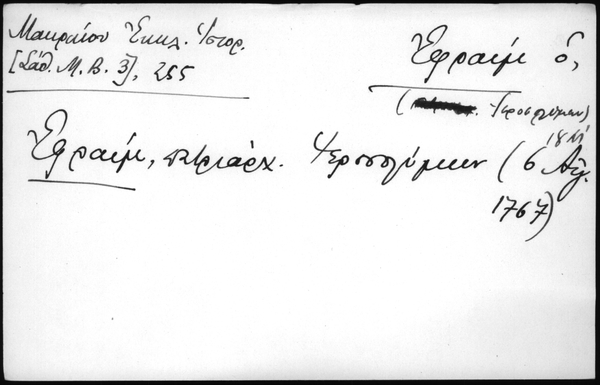 Μακραίου Ἐκκλ. Ἱστορ.
[Σάθ. Μ. Β. 3], 255
Ἐφραὶμ ὁ,
( Ἱεροσολύμων)
Ἐφραὶμ, πατριάρχ. Ἱεροσολύμων (6
1767)